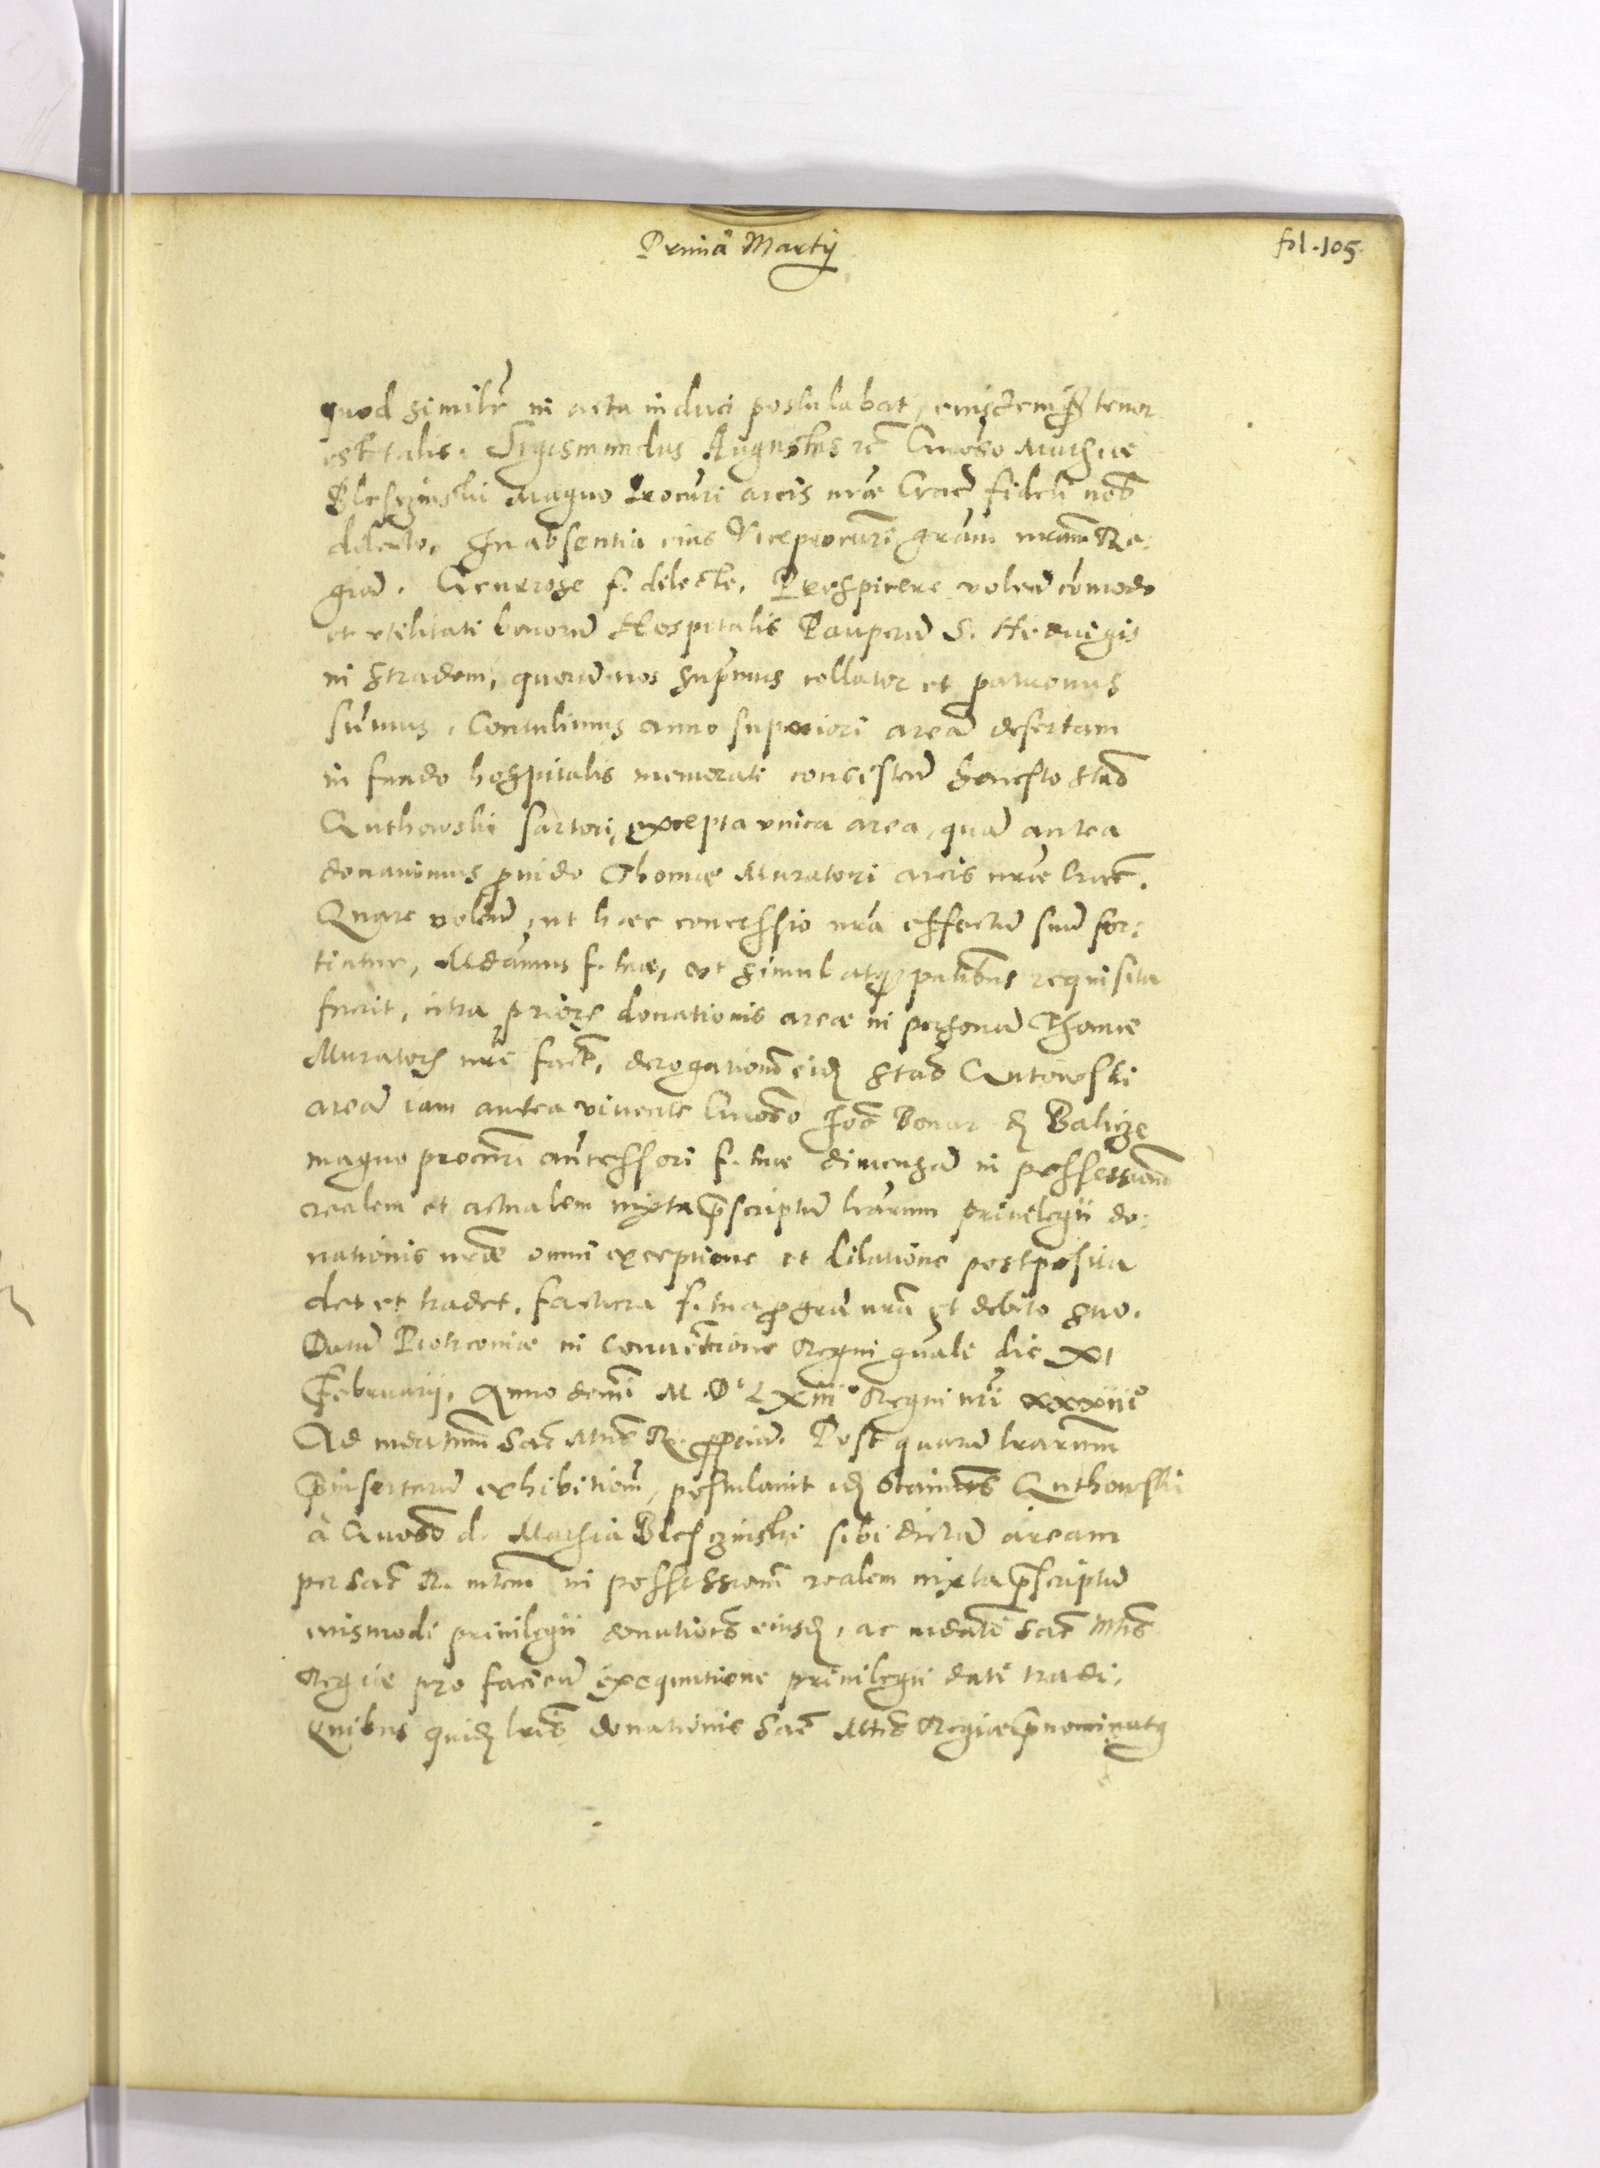 Prima Martij
fol. 105.
quod similr̃ in acta induci postulabat, cuius tenor
est talis. Sigismundus Augustus rc̃ Gnoso Mathiæ
Bleszinski Magno Procuri arcis nr̃æ Crac̃ fideli nob̃
dilecto. In absentia eius Viceprocur̃i grãm nrãm Re:
giã. Generose f. dilecte. Prospicere volen̄ cõmodo
et vtilitati bonorũ Hospitalis Pauperũ S. Hedvigis
in Stradom, quorũ nos suprẽmus collator et patronus
sumus. Contulimus anno superiori areã desertam
in fundo hospitalis memorati consisten̄ honesto Stañ
Quthowski sartori, excepta vnica area, quã antea
donauimus prouido Thomæ Muratori arcis nr̃æ Crac̃.
Quare volen̄, ut hæc concessio nr̃a effectũ suũ sor:
tiatur, Mãdamus f. tuæ, vt simul atq̃ p̃ntibus requisita
fuerit, citra priore donationis areæ in personã Thomæ
Muratoris nr̃i fact̃, derogationẽ eid̃ Stañ Qutowski
areã iam antea viuente Gnoso Joã Bonar de Balicze
magno procuri antecessori f. tuæ dimensã in possessionẽ
realem et actualem iuxta p̃scriptũ lr̃arum priuilegii do:
nationis nr̃æ omni exceptione et dilatione postposita
det et tradet. factura f. tua p̃ gr̃a nr̃a et debito suo.
Datũ Piotrcouiæ in Conuentione Regni gñali die XI
Februarij. Anno domĩ M.D.LXIII° Regni nr̃i xxxiii°
Ad mãdatum Sac̃ Mtis R. propriũ. Post quarũ lr̃arum
p̃insertarũ exhibitionẽ, postulauit id̃ Quthowski
à Gnoso d. Mathia Bleszinski sibi dictã aream
per Sac̃ R. mtem in possessionẽ realem iuxta p̃scriptũ
eiusmodi priuilegii donationis eiusd̃, ac mãdati Sac̃ Mtis
Regiæ pro facien̄ exequutione priuilegii dati tradi.
Quibus quid̃ lr̃is donationis Sac̃ Mtis Regiæ p̃nominatꝫ